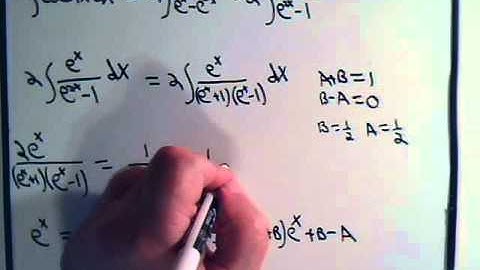 ∫ e^x - e^-x ∫ e^2x - 1
2∫ e^x/(e^2x - 1) dx = 2∫ e^x/((e^x+1)(e^x-1)) dx
A+B=1
B-A=0
B=1/2 A=1/2
2e^x/((e^x+1)(e^x-1)) = 1 1
e^x = +B)e^x + B-A